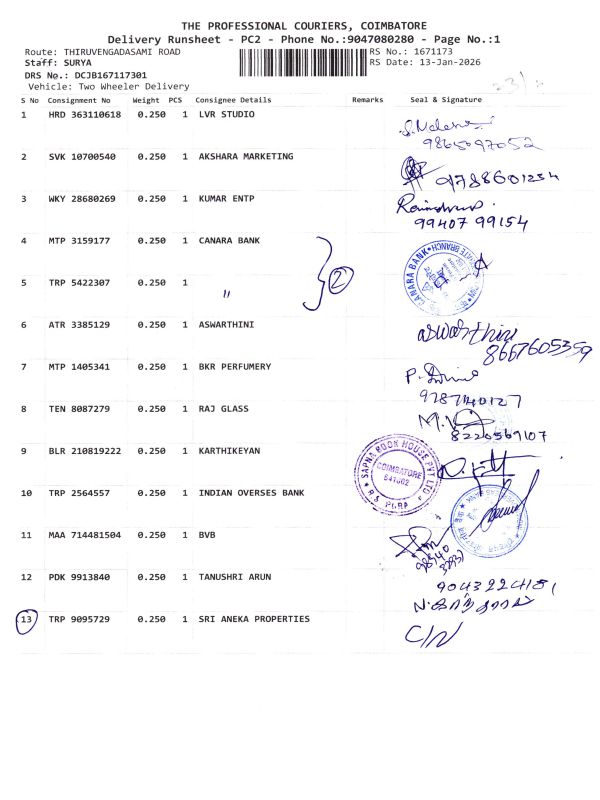 THE PROFESSIONAL COURIERS, COIMBATORE
Delivery Runsheet - PC2 - Phone No.:9047080280 - Page No.:1
Route: THIRUVENGADASAMI ROAD RS No.: 1671173
Staff: SURYA RS Date: 13-Jan-2026
DRS No.: DCJB167117301
Vehicle: Two Wheeler Delivery
S No Consignment No Weight PCS Consignee Details Remarks Seal & Signature
1 HRD 363110618 0.250 1 LVR STUDIO
9865097052
2 SVK 10700540 0.250 1 AKSHARA MARKETING
9788601234
3 WKY 28680269 0.250 1 KUMAR ENTP
99407 99154
4 MTP 3159177 0.250 1 CANARA BANK
CANARA BANK
5 TRP 5422307 0.250 1 〃 2
6 ATR 3385129 0.250 1 ASWARTHINI
aswarthini
8667605359
7 MTP 1405341 0.250 1 BKR PERFUMERY
9787140127
8 TEN 8087279 0.250 1 RAJ GLASS
8220569107
9 BLR 210819222 0.250 1 KARTHIKEYAN
SAPNA BOOK HOUSE PVT LTD
COIMBATORE
641002
R.S. PURA
10 TRP 2564557 0.250 1 INDIAN OVERSES BANK
11 MAA 714481504 0.250 1 BVB
12 PDK 9913840 0.250 1 TANUSHRI ARUN
9043224181
13 TRP 9095729 0.250 1 SRI ANEKA PROPERTIES
C/N